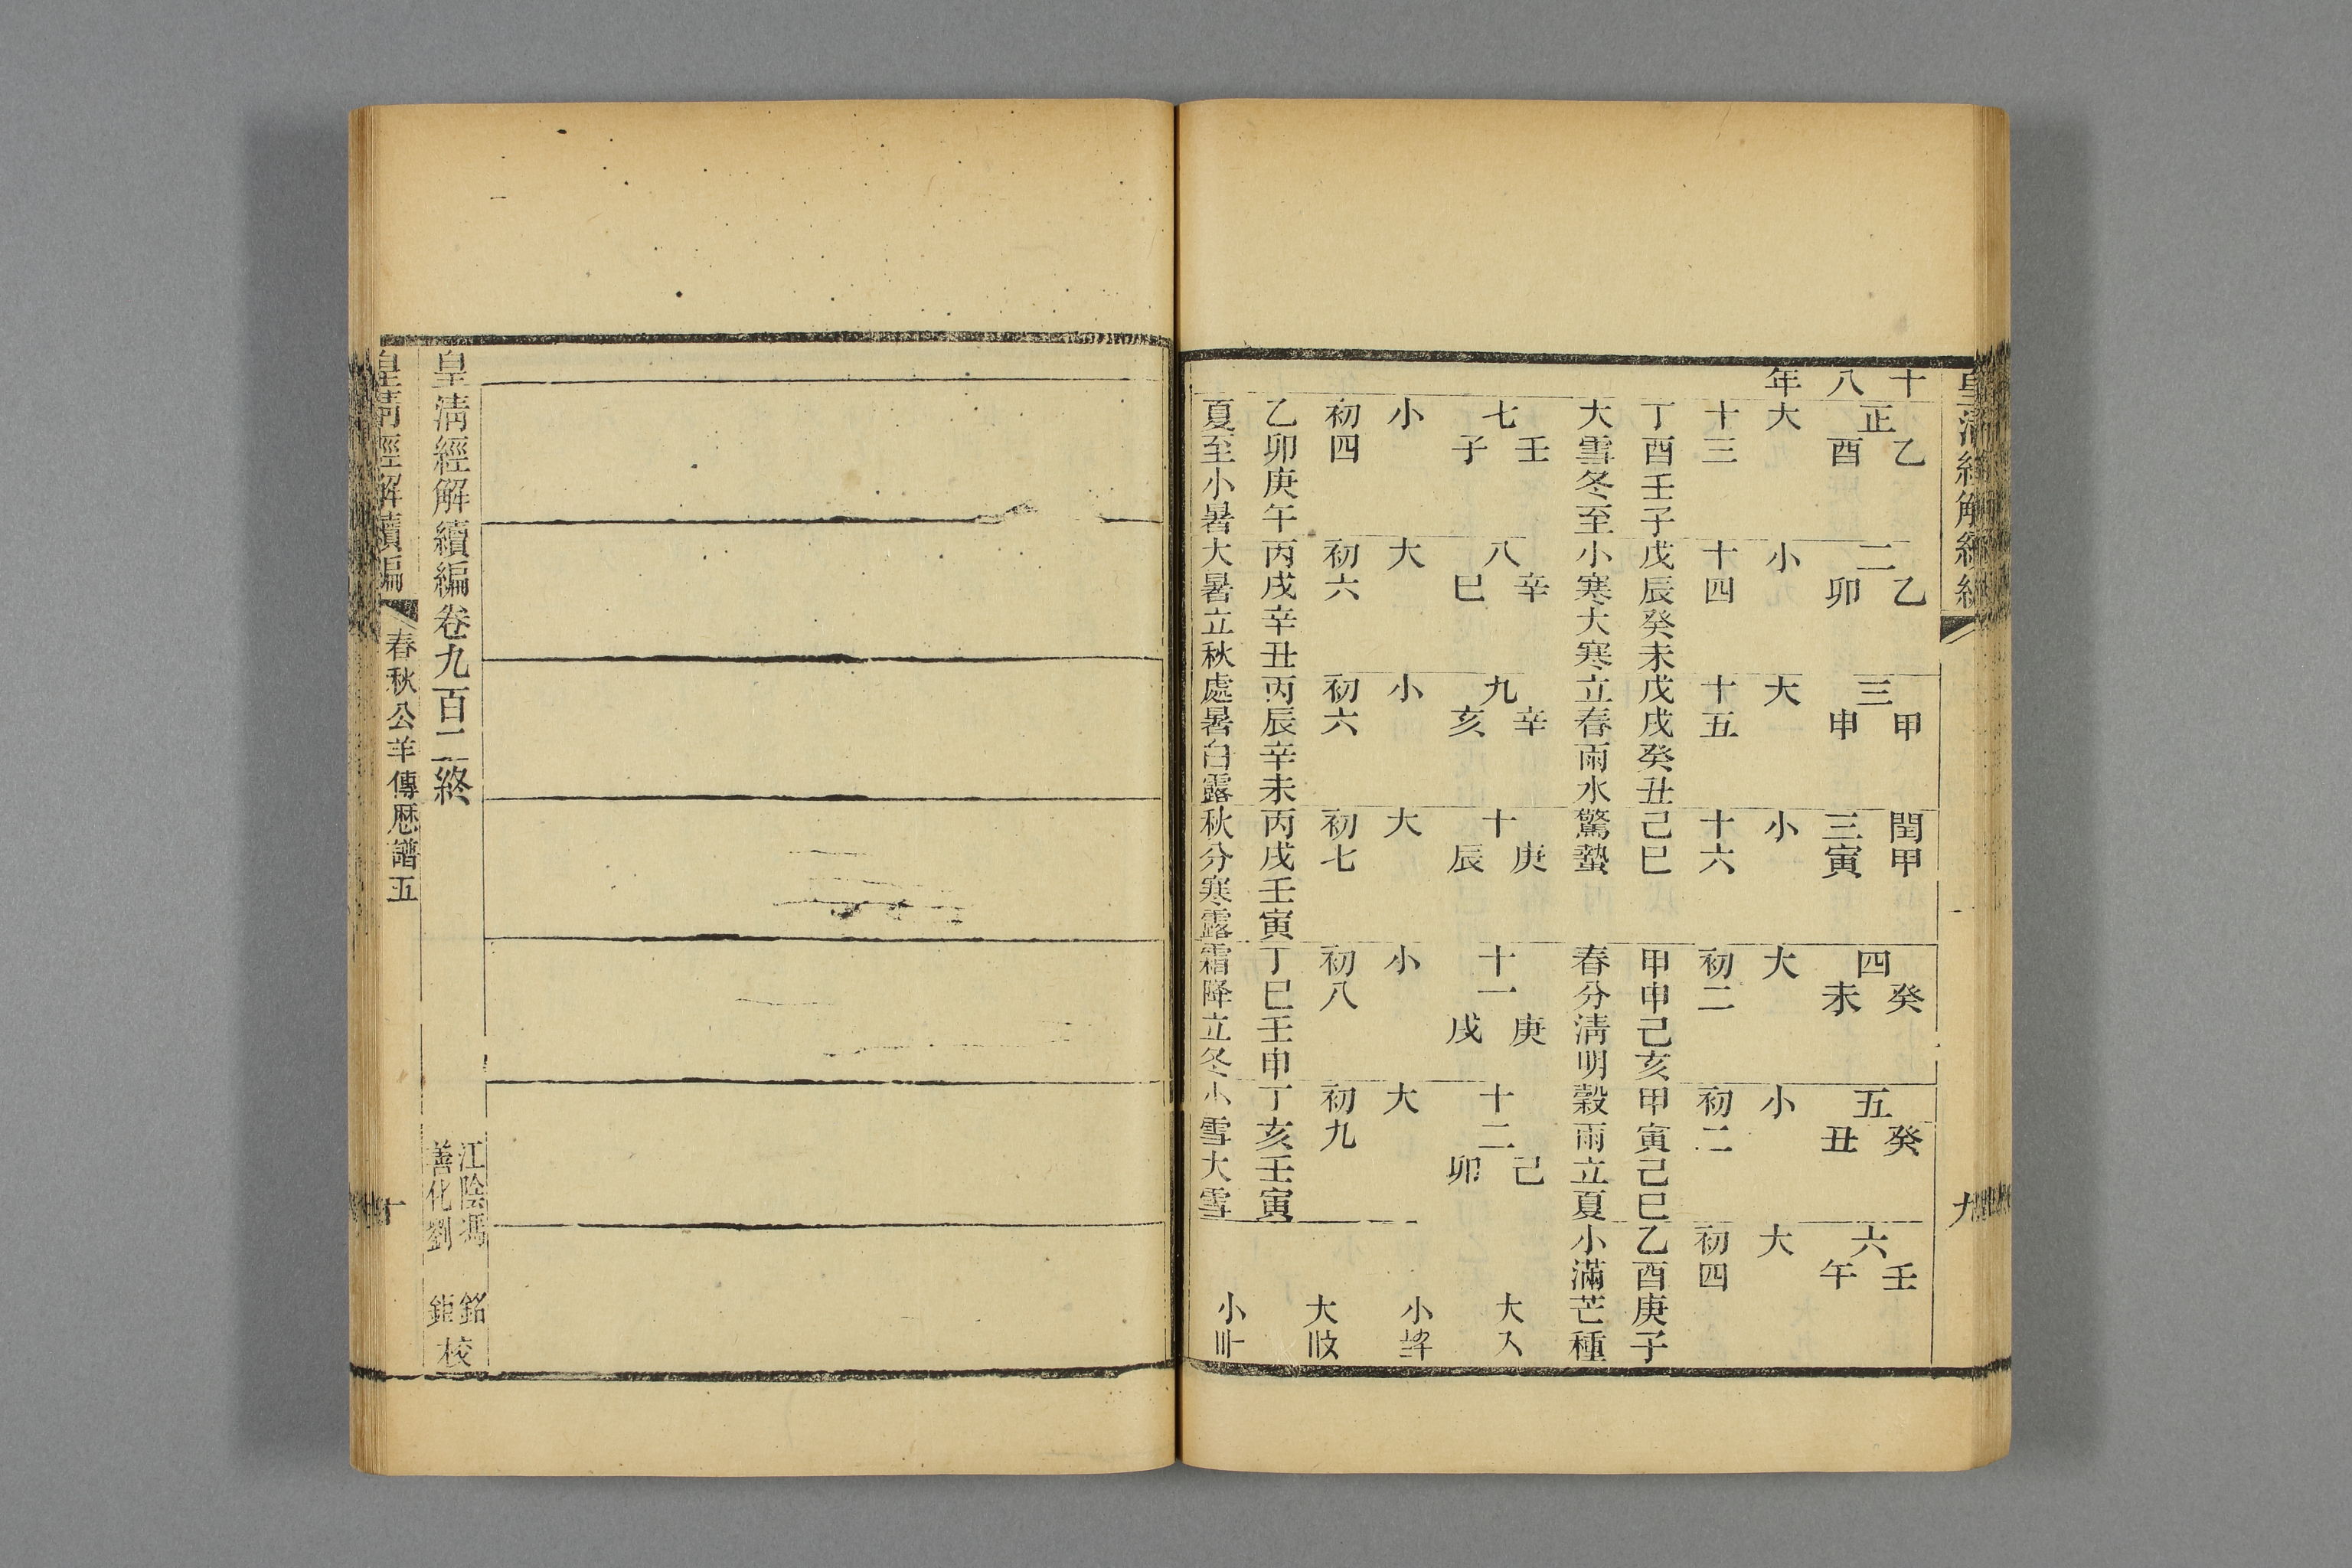 皇清經解續編
九
十八年
正 乙酉 大 十三 丁酉壬子 大雪冬至
二 乙卯 小 十四 戊辰癸未 小寒大寒
三 甲申 大 十五 戊戌癸丑 立春雨水
閏三 甲寅 小 十六 己巳 驚蟄
四 癸未 大 初二 甲申己亥 春分清明
五 癸丑 小 初二 甲寅己巳 穀雨立夏
六 壬午 大 初四 乙酉庚子 小滿芒種
七 壬子 小 初四 乙卯庚午 夏至小暑
八 辛巳 大 初六 丙戌辛丑 大暑立秋
九 辛亥 小 初六 丙辰辛未 處暑白露
十 庚辰 大 初七 丙戌壬寅 秋分寒露
十一 庚戌 小 初八 丁巳壬申 霜降立冬
十二 己卯 大 初九 丁亥壬寅 小雪大雪
大
小
大
小
皇清經解續編卷九百二終
江陰馮銘
善化劉鉅
校
皇清經解續編
春秋公羊傳厯譜五
十